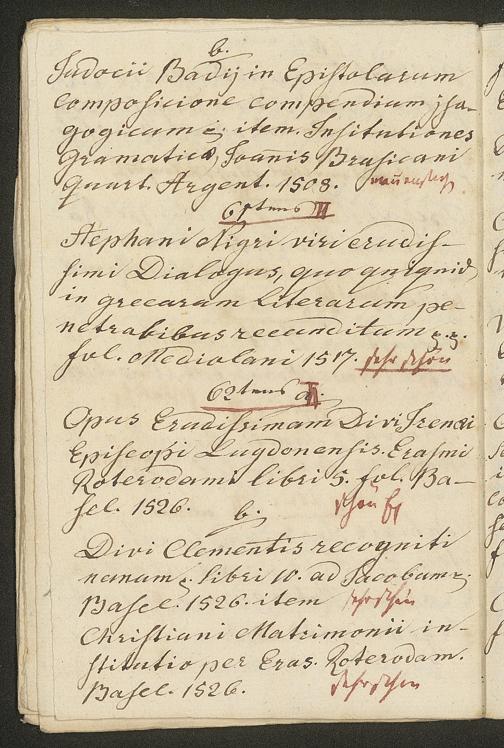 b.
Judocii Badij in Epistolarum
composicione compendium jsa-
gogicum &; item. Insitutiones
gramaticæ, Joannis Brasicani
quart. Argent. 1508.
61tens III
Stephani Nigri viri erudis-
simi Dialogus, quo quiquid
in grecarum Literarum pe-
netrabibus reconditum &.&.
fol. Mediolani 1517. sehr schön
62tens II
a.
Opus Erudissimam Divi Irenæi
Episcopi Lugdonensis. Erasmi
Roterodami libri 5. fol. Ba-
sel. 1526. schön
b.
Divi Clementis recogniti
nanum libri 10. ad Jacobum
Basel. 1526. item sehr schön
Christiani Matrimonii in-
stitutio per Eras. Roterodam.
Basel. 1526. sehr schön